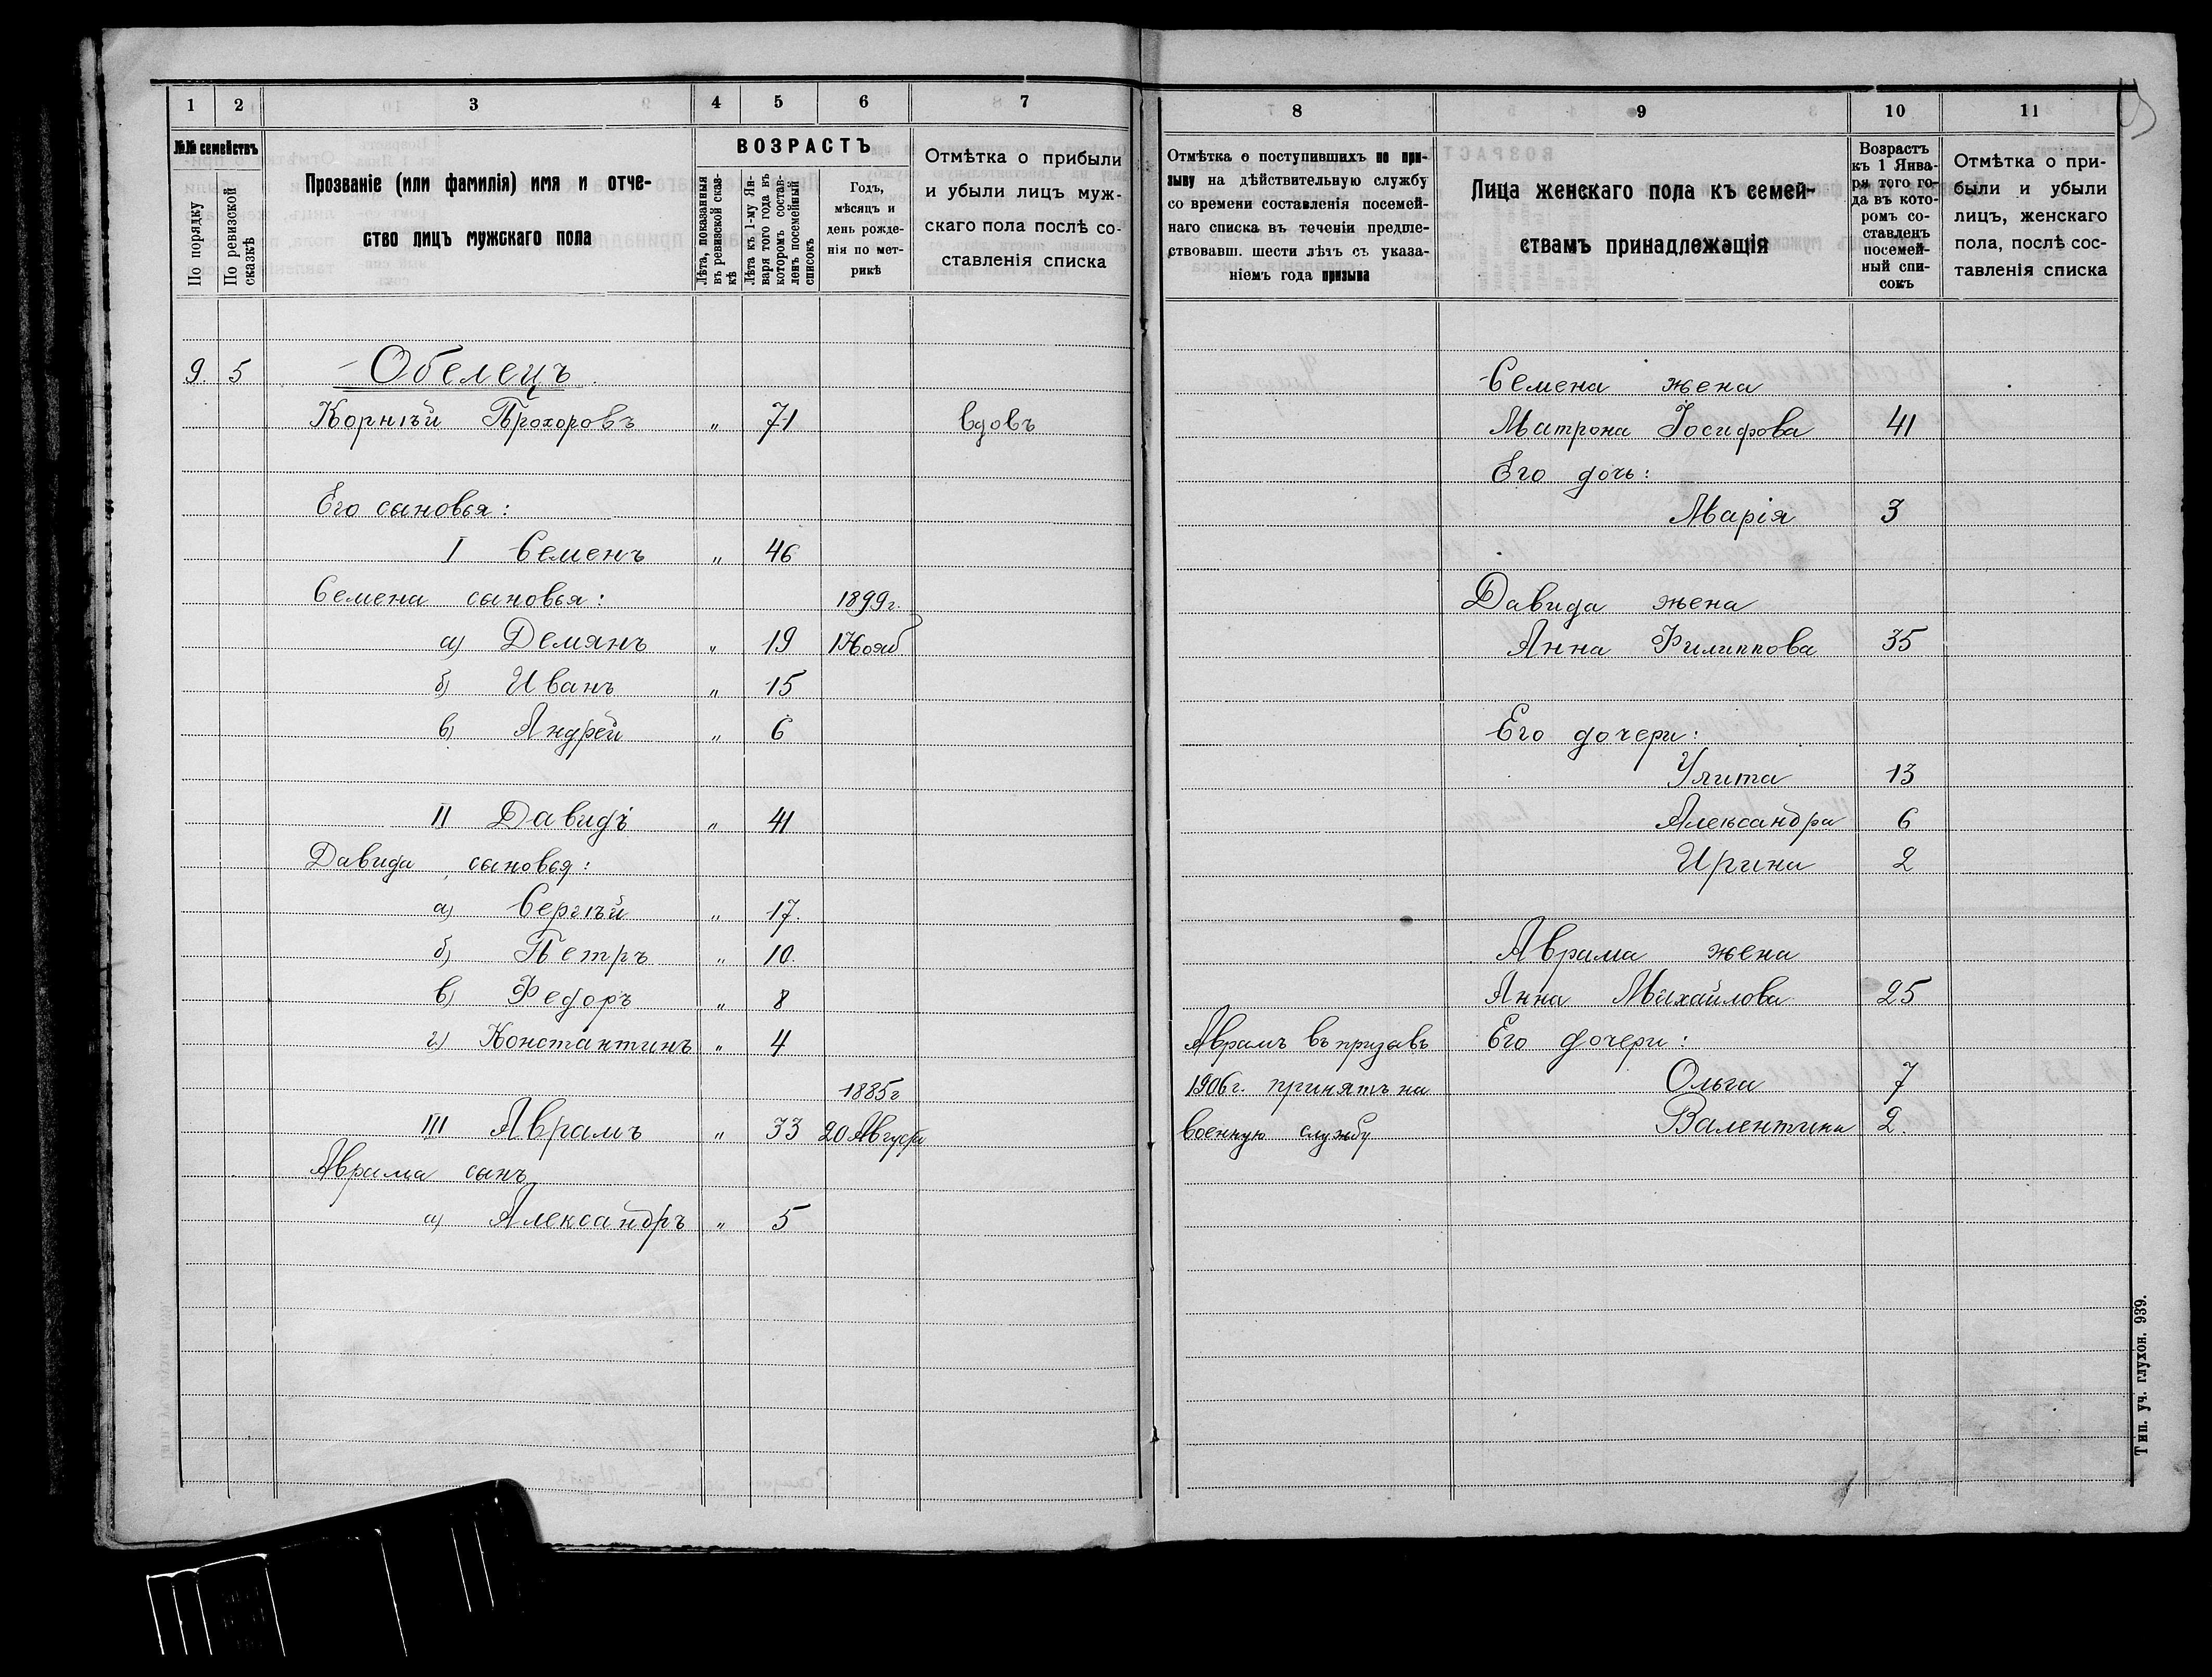 1 2 3 4 5 6 7
№№ семействъ
По порядку
По ревизской сказкѣ
Прозваніе (или фамилія) имя и отче-
ство лицъ мужскаго пола
ВОЗРАСТЪ
Лѣта, показанныя
въ ревизской сказ-
кѣ
Лѣта къ 1-му Ян-
варя того года въ
которомъ состав-
ленъ посемейный
списокъ
Годъ,
мѣсяцъ и
день рожде-
нія по мет-
рикѣ
Отмѣтка о прибыли
и убыли лицъ муж-
скаго пола послѣ со-
ставленія списка
9. 5 Обелецъ
Корнѣй Прохоровъ " 71 вдовъ
Его сыновья:
I Семенъ " 46
Семена сыновья: 1899г.
а) Демянъ " 19 1 Нояб
б) Иванъ " 15
в) Андрей " 6
II Давидъ " 41
Давида сыновья:
а) Сергѣй " 17.
б) Петръ " 10.
в) Федоръ " 8
г) Константинъ " 4
1885г
III Аврамъ " 33 20 Августа
Аврама сынъ
а) Александръ " 5
8 9 10 11
Отмѣтка о поступившихъ по при-
зыву на дѣйствительную службу
со времени составленія посемей-
наго списка въ теченіи предше-
ствовавш. шести лѣтъ съ указа-
ніемъ года призыва
Лица женскаго пола къ семей-
ствамъ принадлежащія
Возрастъ
къ 1 Янва-
ря того го-
да въ кото-
ромъ со-
ставленъ
посемей-
ный спи-
сокъ
Отмѣтка о при-
были и убыли
лицъ, женскаго
пола, послѣ сос-
тавленія списка
Семена жена
Матрона Іосифова 41
Его дочь:
Марія 3
Давида жена
Анна Филиппова 35
Его дочери:
Улита 13
Александра 6
Ирина 2
Аврама жена
Анна Михайлова 25
Аврамъ въ призывъ Его дочери:
1906г. принятъ на Ольга 7
военную службу Валентина 2.
Тип. уч. глухон. 939.